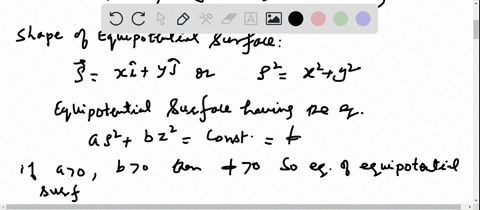 Shape of Equipotential Surface:
ρ⃗ = xî + yĵ or ρ² = x²+y²
Equipotential Surface having the eq.
aρ² + bz² = Const. =
if a>0, b>0 then >0 So eq. of equipotential
surf